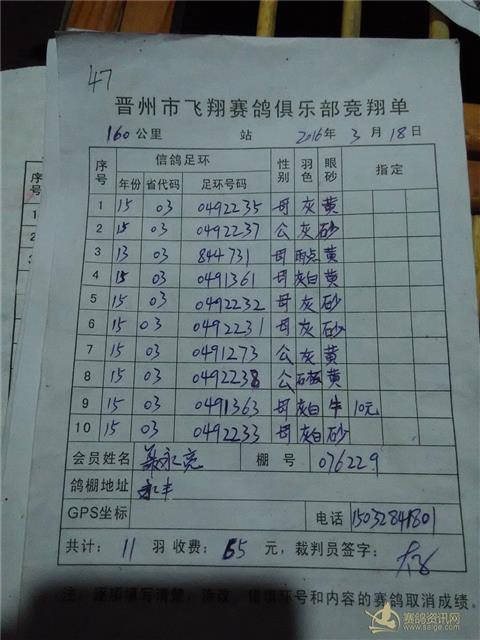 47
晋州市飞翔赛鸽俱乐部竞翔单
160公里 站 2016年3月18日
序号 信鸽足环 性别 羽色 眼砂 指定
年份 省代码 足环号码
1 15 03 0492235 母 灰 黄
2 15 03 0492237 公 灰 砂
3 13 03 844731 母 雨点 黄
4 15 03 0491361 母 灰白 黄
5 15 03 0492232 母 灰 砂
6 15 03 0492231 母 灰 砂
7 15 03 0491273 公 灰 黄
8 15 03 0492238 公 石板 黄
9 15 03 0491363 母 灰白 牛 10元
10 15 03 0492233 母 灰白 砂
会员姓名 聂永亮 棚号 076229
鸽棚地址 永丰
GPS坐标 电话 15032841801
共计：11羽 收费：65元，裁判员签字：
注：逐项填写清楚，涂改、错填环号和内容的赛鸽取消成绩。
赛鸽资讯网
www.saige.com